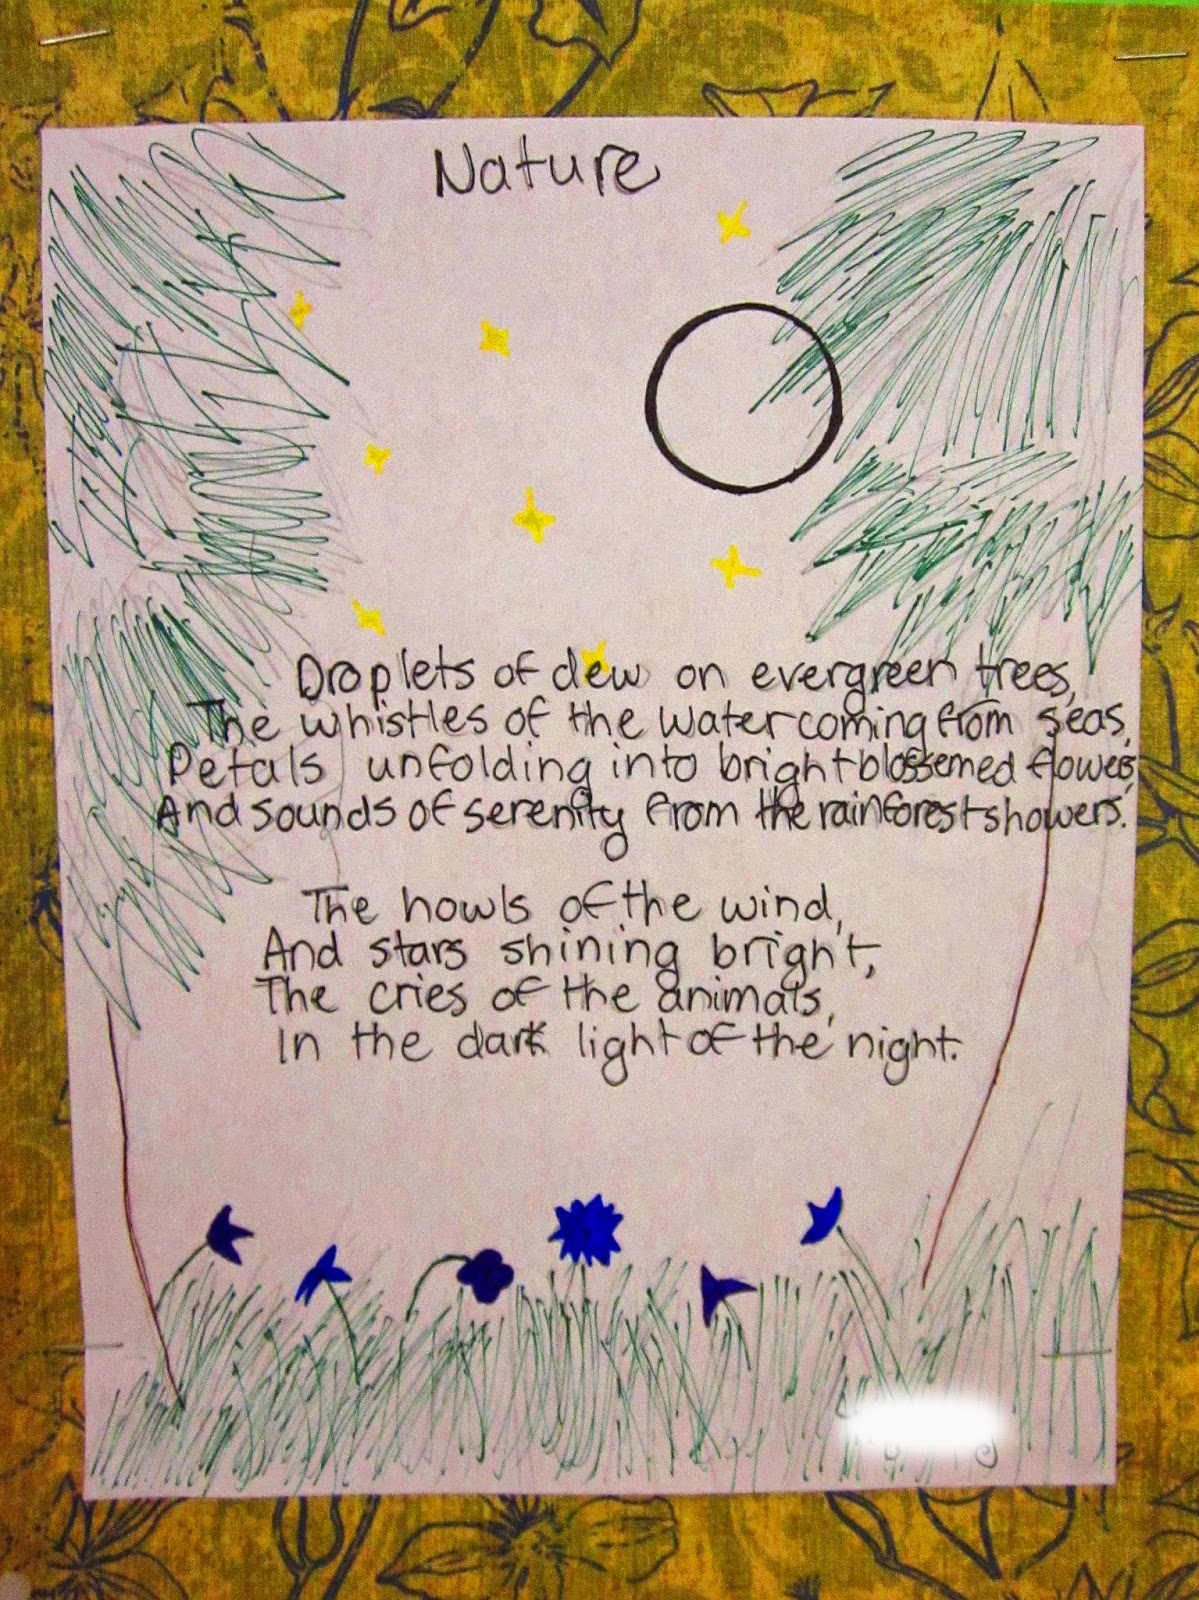 Nature
Droplets of dew on evergreen trees,
The whistles of the water coming from seas,
Petals unfolding into bright blossemed flowers,
And sounds of serenity from the rainforest showers.
The howls of the wind,
And stars shining bright,
The cries of the animals,
In the dark light of the night.